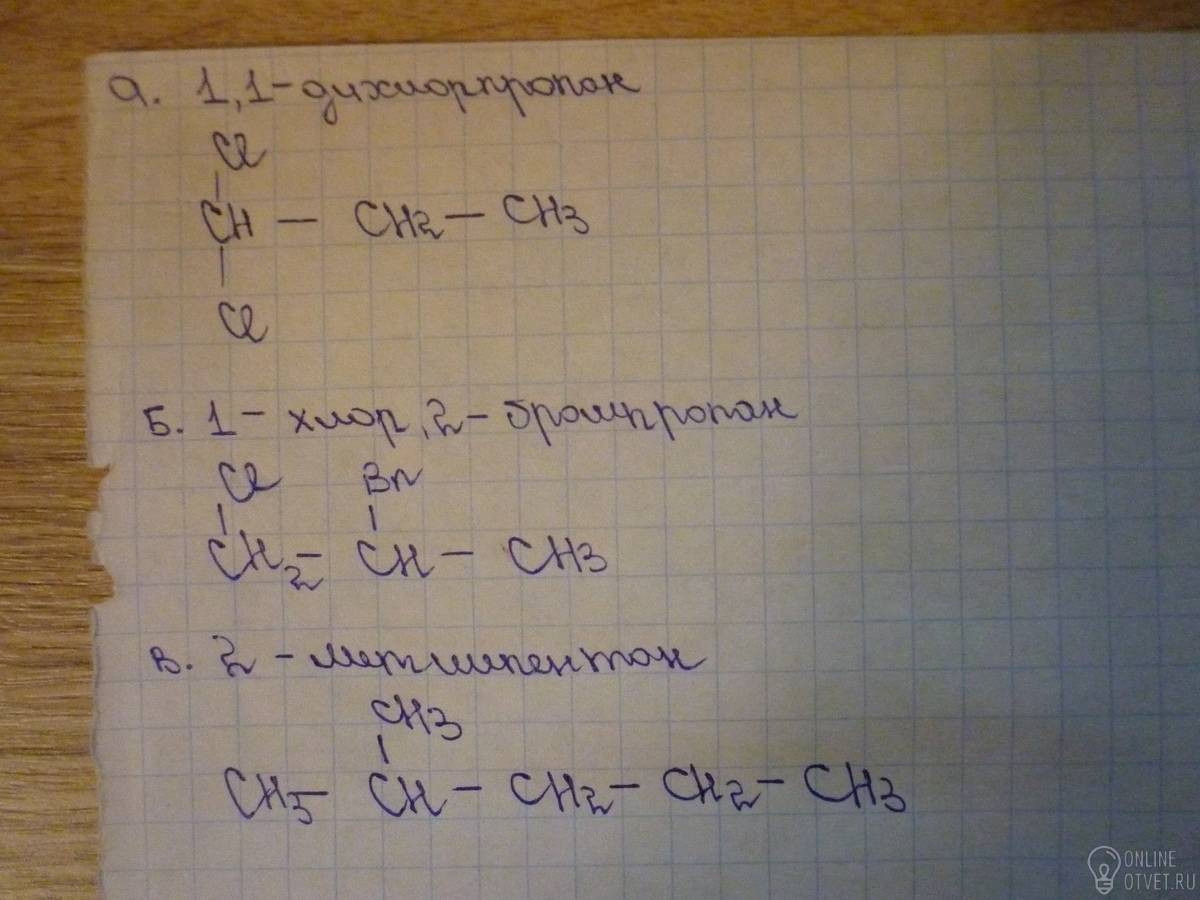 а. 1,1-дихлорпропан
Cl
CH — CH2 — CH3
Cl
Б. 1 - хлор, 2 - бромпропан
Cl Br
CH2 - CH — CH3
в. 2 - метилпентан
CH3
CH3 - CH - CH2 - CH2 - CH3
ONLINE
OTVET.RU